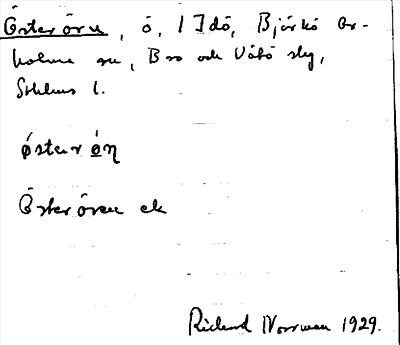 Österören, ö, 1 Idö, Björkö Ar-
holma sn, Bro och Vätö slg,
Sthlms l.
östərö̀ṇ
Österören ek
Rickard Norrman 1929.